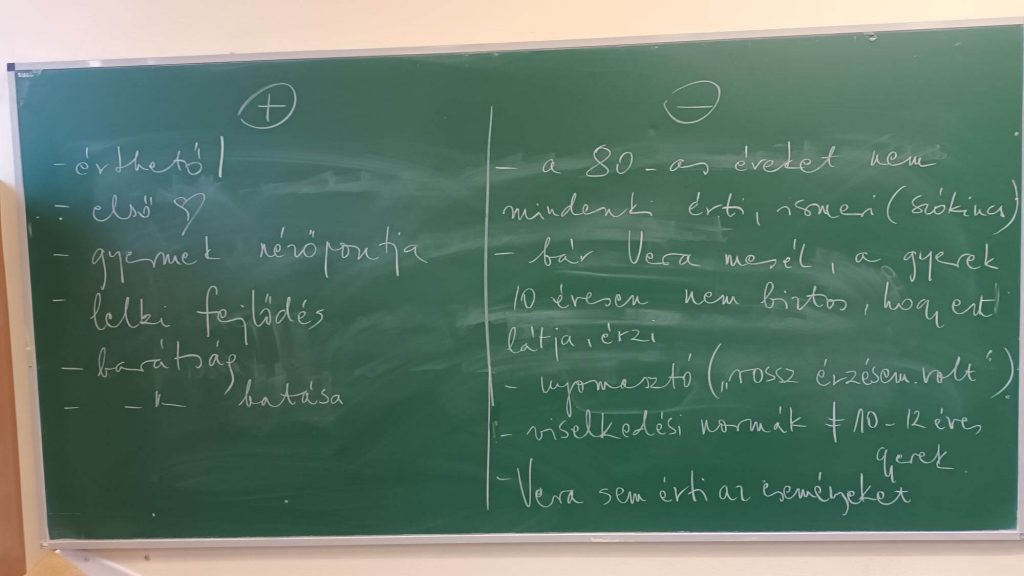 +
- érthető
- első ♡
- gyermek nézőpontja
- lelki fejlődés
- barátság
- -"- hatása
-
- a 80-as éveket nem
mindenki érti, ismeri (szókincs)
- bár Vera mesél, a gyerek
10 évesen nem biztos, hogy ezt
látja, érzi
- nyomasztó („rossz érzésem volt")
- viselkedési normák ≠ 10-12 éves
gyerek
- Vera sem érti az eseményeket